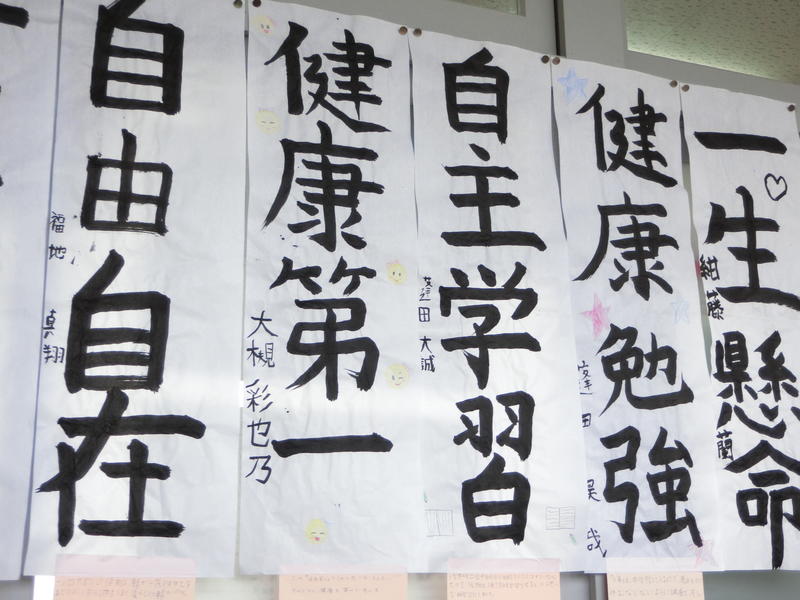 自由自在
福地 真翔
健康第一
大槻 彩也乃
自主学習
蓬田 大誠
健康勉強
蓬田
一生懸命
紺藤 蘭